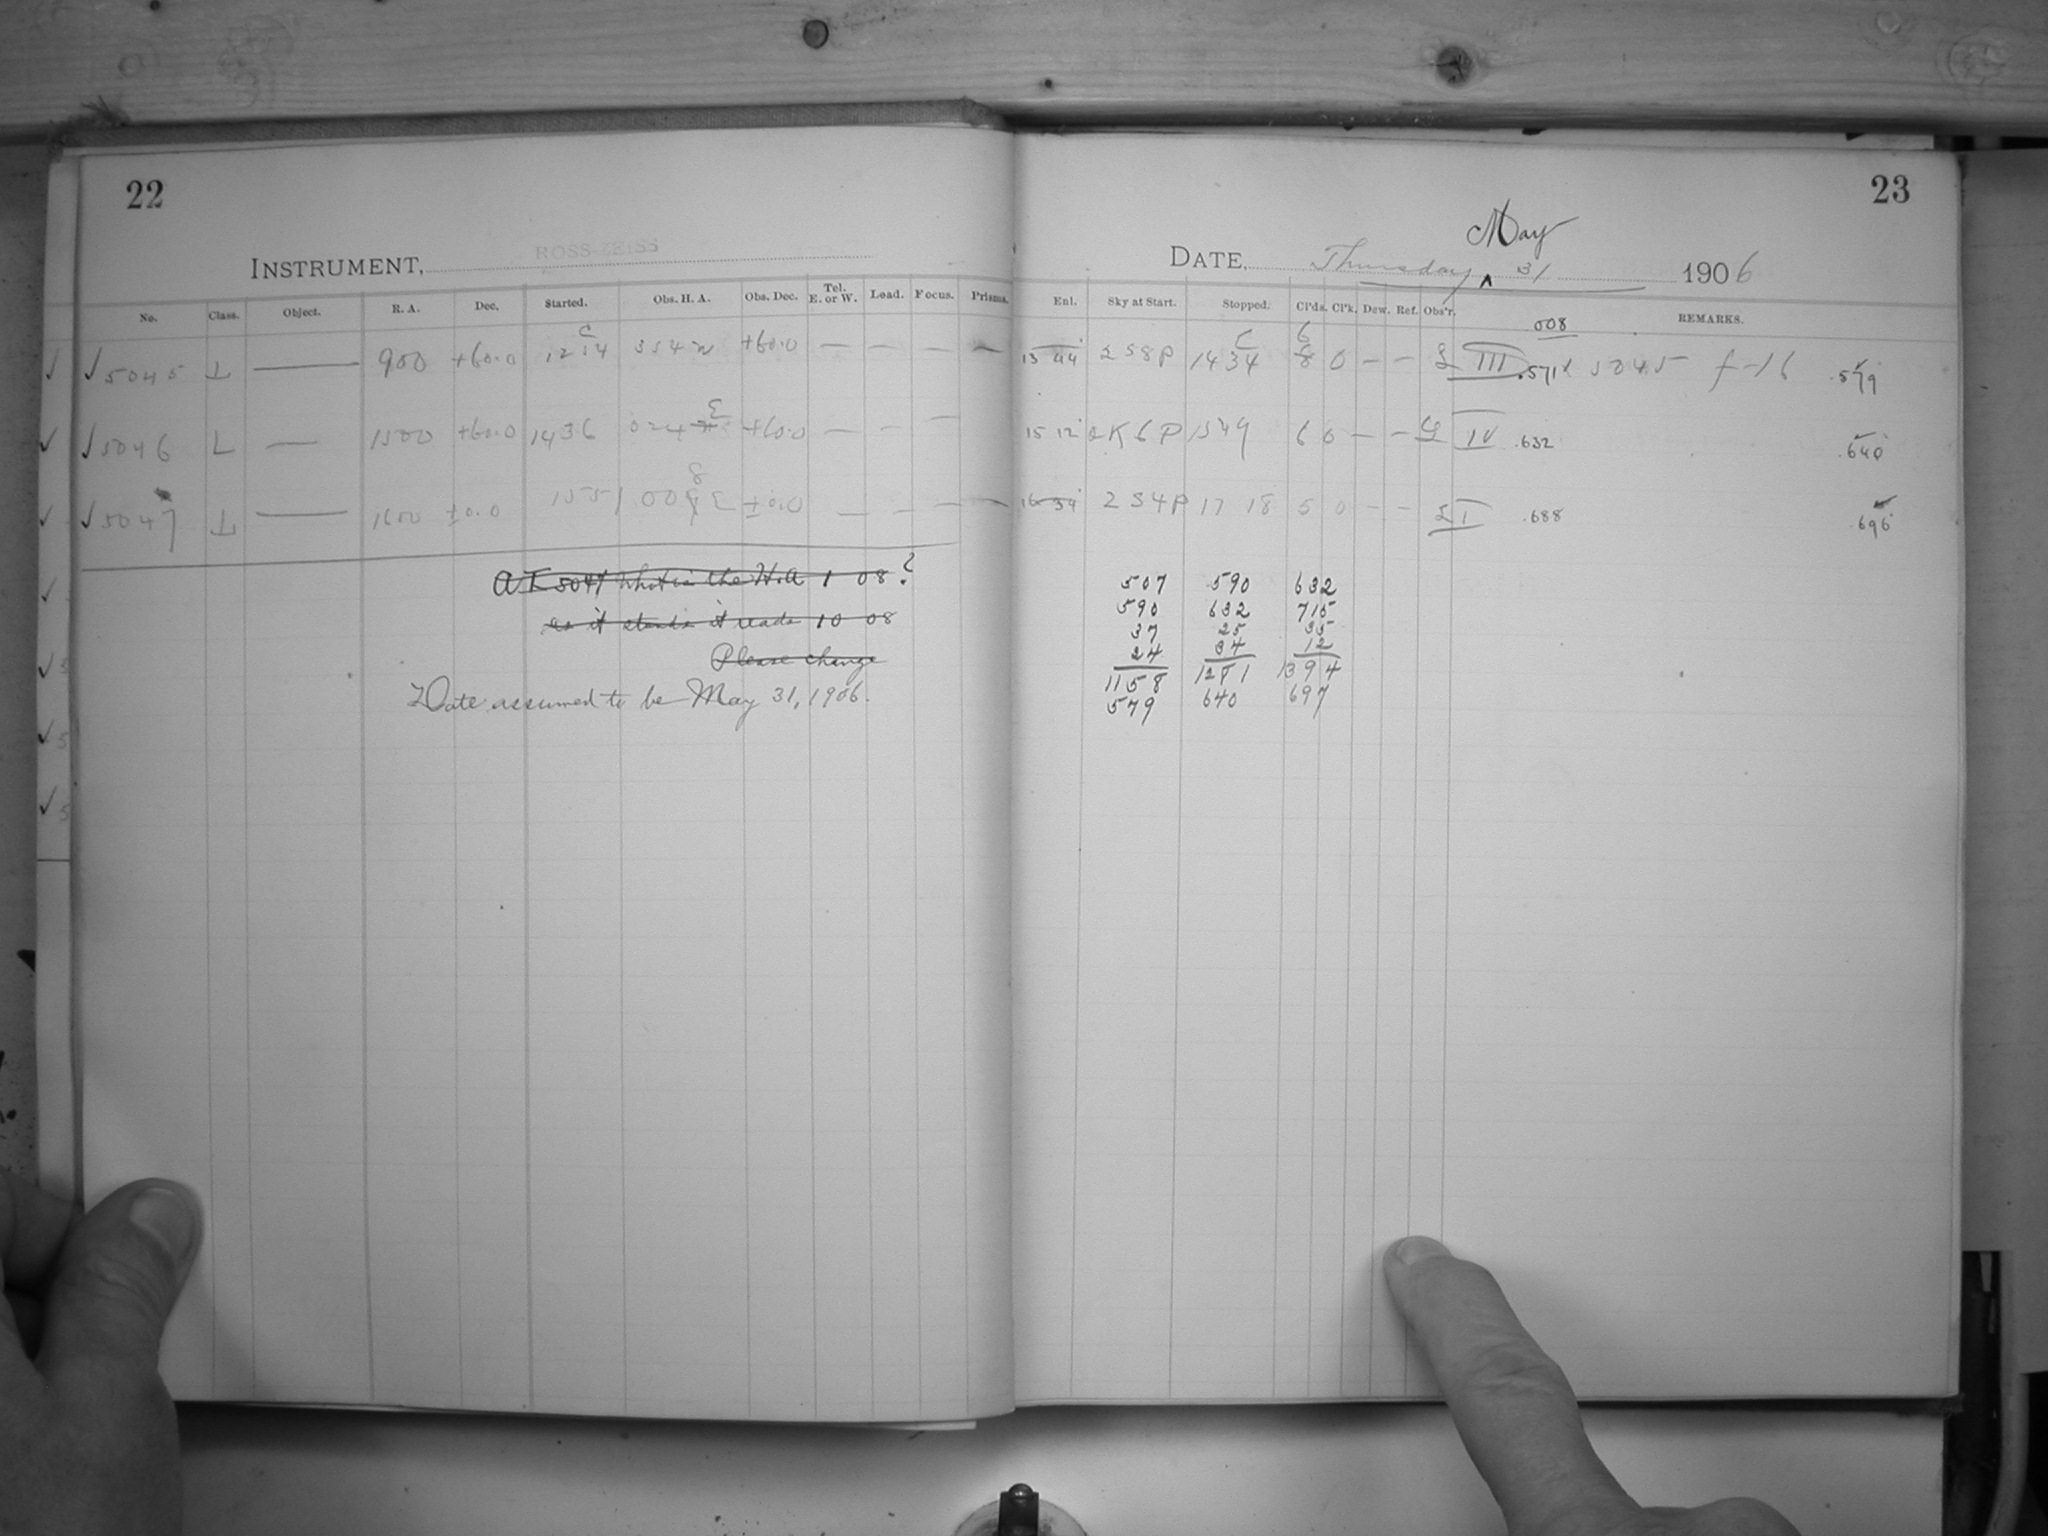 22
INSTRUMENT, ROSS-ZEISS
No. Class. Object. R. A. Dec. Started. Obs. H. A. Obs. Dec. Tel. E. or W. Load. Focus. Prisms.
✓ ✓ 5045 L — 900 +60.0 1214 C 354 W +60.0 — — — —
✓ ✓ 5046 L — 1500 +60.0 1436 024 E +60.0 — — —
✓ ✓ 5047 L — 1600 ±0.0 1551 008 E ±0.0 — — — —
At 5047 what is the H.A 1 08?
as it stands it reads 10 08
Please change
Date assumed to be May 31, 1906.
23
May
DATE, Thursday ^ 31 1906
Enl. Sky at Start. Stopped. Cl'ds. Cl'k. Dew. Ref. Obs'r. REMARKS.
008
13 44 2S8P 1434 C 6 8 0 — — III .571 5045 f-16 .579
15 12 K6P 1549 6 0 — — IV .632 .640
16 34 2S4P 17 18 5 0 — — I .688 .696
507 590 632
590 632 715
37 25 35
24 34 12
1158 1281 1394
579 640 697